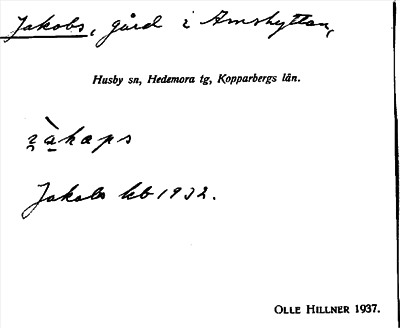 Jakobs, gård i Amshyttan,
Husby sn, Hedemora tg, Kopparbergs län.
Jakobs kb 1932.
OLLE HILLNER 1937.